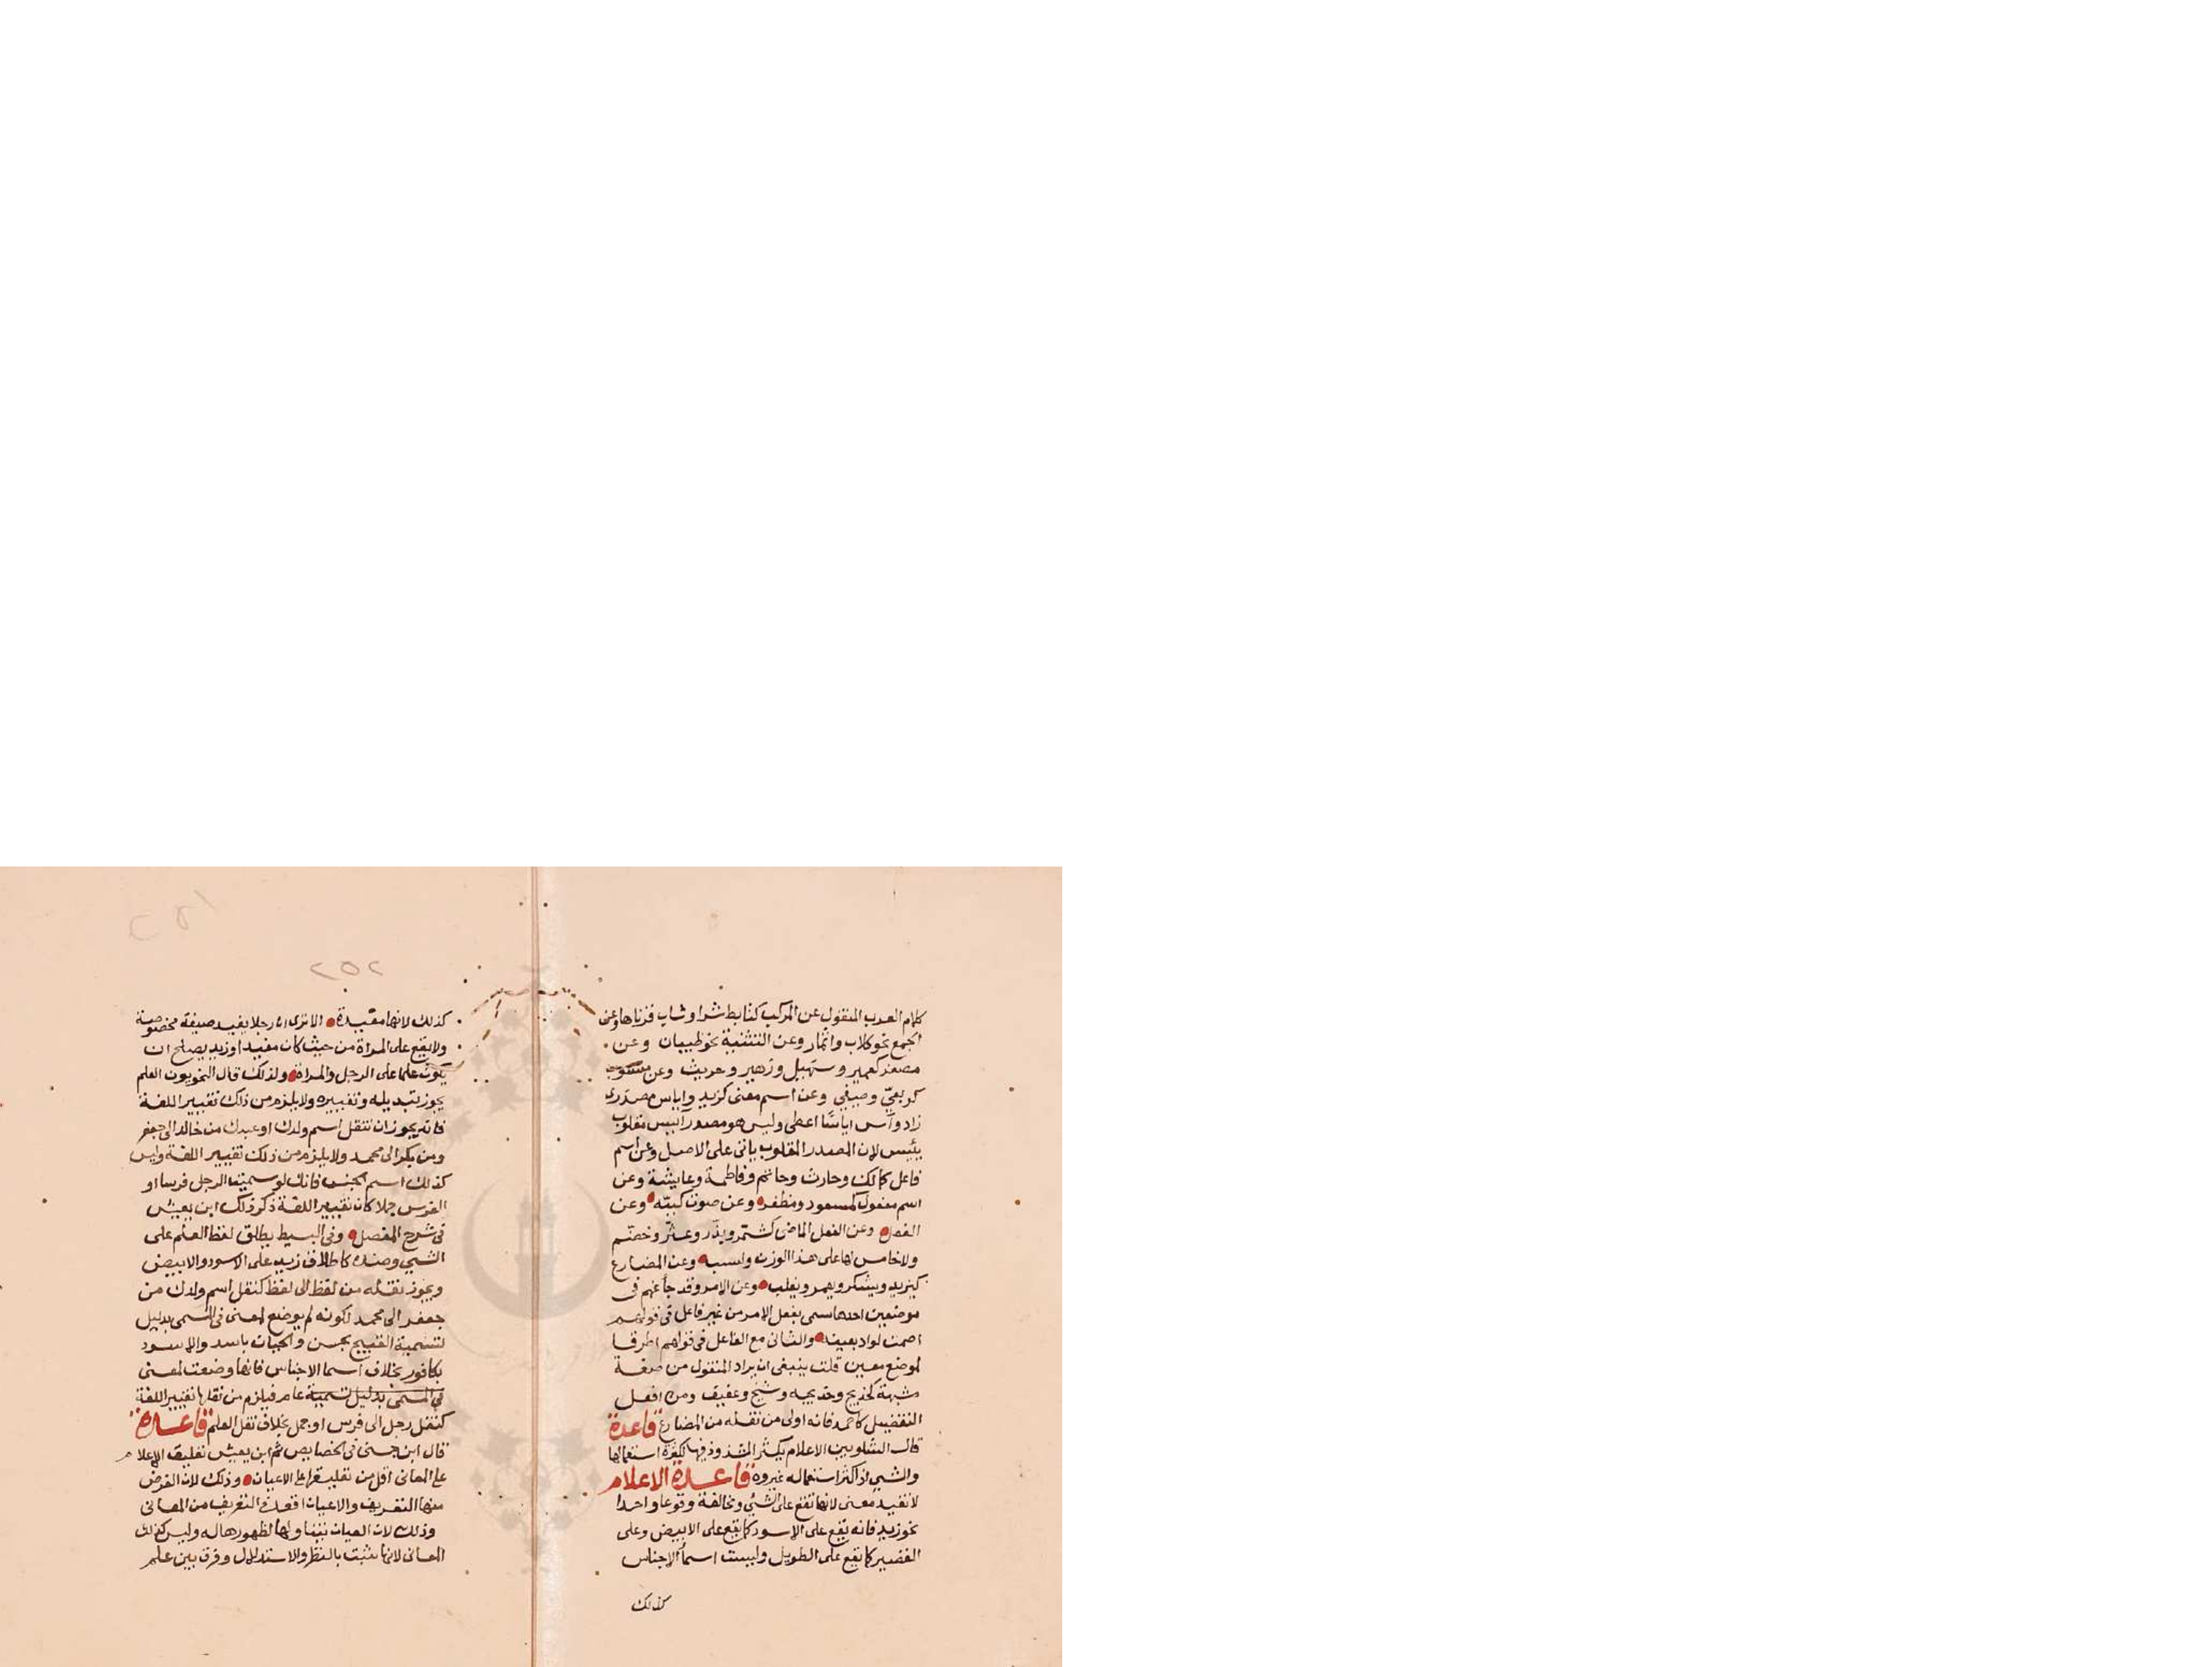 كلام العرب المنقول عن المركب كتابط شرا وشاب قرناها وعن
الجمع نحو كلاب وانمار وعن التثنية نحو ظبيان وعن
مصغر كعمير وسهيل وزهير وحريث وعن منسوب
كربعيّ وصيفي وعن اسم معنى كزيد واياس مصدرى
زاد وآس اياسًا اعطى وليس هو مصدر آيس مقلوب
يئيس لان المصدر المقلوب ياتى على الاصل وعن اسم
فاعل كمالك وحارث وحاتم وفاطمة وعايشة وعن
اسم مفعول كمسعود ومظفر وعن صوت كببّه وعن
الفعل وعن الفعل الماضى كشمّر وبذّر وعثّر وخضّم
ولا خامس لها على هذا الوزن وكسبه وعن المضارع
كيزيد ويشكر ويعمر وتغلب وعن الامر وقد جا عنهم فى
موضعين احدهما سمى بفعل الامر من غير فاعل فى قولهم
اصمت لواد بعينه والثانى مع الفاعل فى قولهم اطرقا
لموضع معين قلت ينبغى ان يراد المنقول من صفة
مشبهة كخديج وخديجه وشيخ وعفيف ومن افعل
التفضيل كاحمد فانه اولى من نقله من المضارع قاعدة
قال الشلوبين الاعلام يكثر الشذوذ فيها لكثرة استعمالها
والشي اذا كثر استعماله غيروه قاعدة الاعلام
لا تفيد معنى لانها تقع على الشئ ومخالفة وقوعا واحدا
نحو زيد فانه يقع على الاسود كما يقع على الابيض وعلى
القصير كما يقع على الطويل وليست اسما الاجناس
كذلك
٢٥٢
كذلك لانها مقيدة الا ترى ان رجلا يفيد صيغة مخصوصة
ولا يقع على المراة من حيث كان مفيدا وزيد يصلح ان
يكون علما على الرجل والمراة ولذلك قال النحويون العلم
يجوز تبديله وتغييره ولا يلزم من ذلك تغيير اللغة
فانه يجوز ان تنقل اسم ولدك او عبدك من خالد الى جعفر
ومن بكر الى محمد ولا يلزم من ذلك تغيير اللغة وليس
كذلك اسم الجنس فانك لو سميت الرجل فرسا او
الفرس جملا كان تغيير اللغة ذكر ذلك ابن يعيش
فى شرح المفصل وفى البسيط يطلق لفظ العلم على
الشي وضده كاطلاق زيد على الاسود والابيض
ويجوز نقله من لفظ الى لفظ كنقل اسم ولدك من
جعفر الى محمد لكونه لم يوضع لمعنى فى المسمى بدليل
تسمية القبيح بحسن والجبان باسد والاسود
بكافور بخلاف اسما الاجناس فانها وضعت لمعنى
فى المسمى بدليل تسمية عام فيلزم من نقلها تغيير اللغة
كنقل رجل الى فرس او جمل بخلاف نقل العلم قاعدة
قال ابن جنى فى الخصايص ثم ابن يعيش تعليق الاعلام
على المعانى اقل من تعليقها على الاعيان وذلك لان الغرض
منها التعريف والاعيان اقعد فى التعريف من المعانى
وذلك لان العيان يتناولها لظهورها له وليس كذلك
المعانى لانها تثبت بالنظر والاستدلال وفرق بين علم